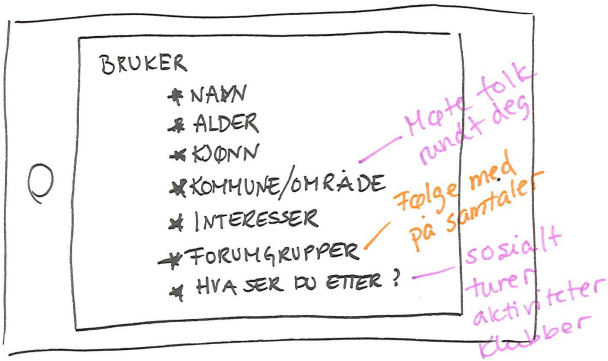 BRUKER
* NAVN
* ALDER
* KJØNN
* KOMMUNE/OMRÅDE
* INTERESSER
* FORUMGRUPPER
* HVA SER DU ETTER ?
Møte folk
rundt deg
Følge med
på samtaler
sosialt
turer
aktiviteter
klubber